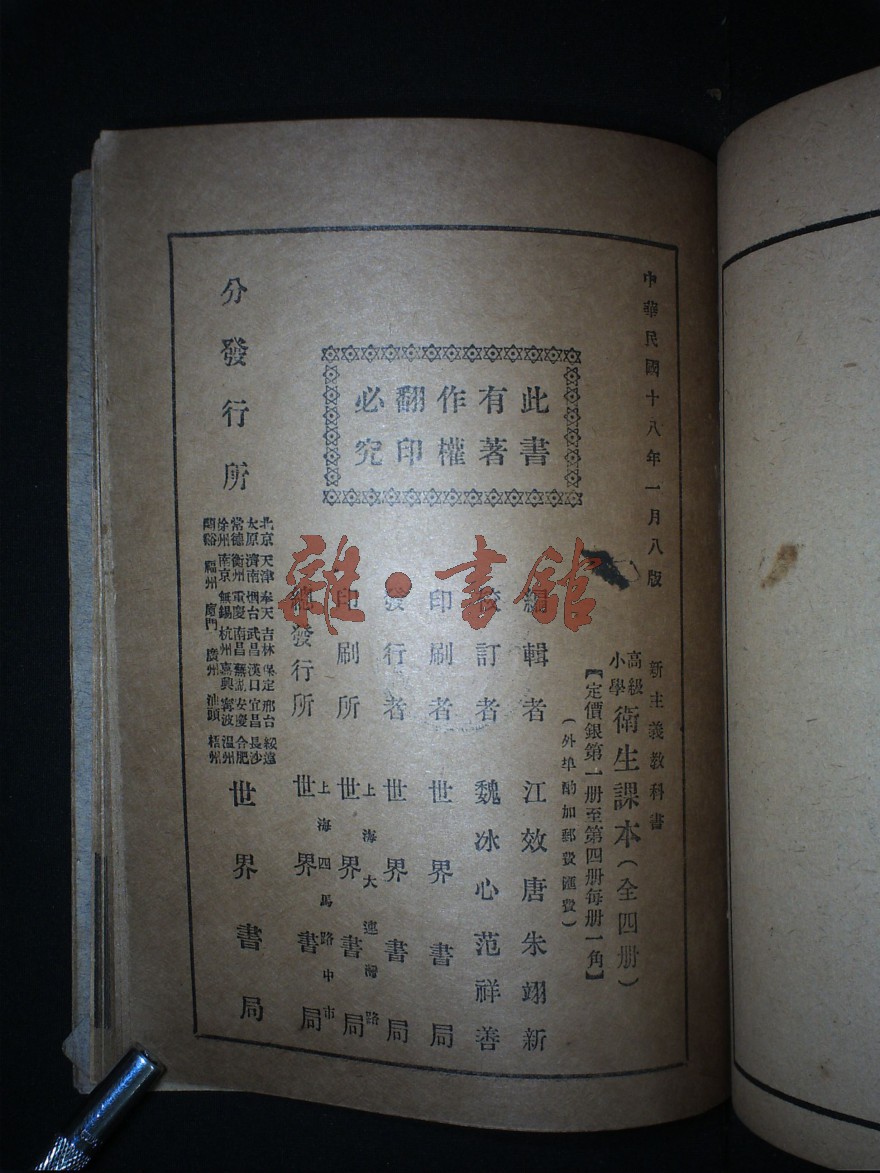 中華民國十八年一月八版
新主義教科書
高級小學衛生課本（全四册）
【定價銀第一册至第四册每册一角】
（外埠酌加郵費匯費）
此書
有著
作權
翻印
必究
編輯者 江效唐 朱翊新
校訂者 魏冰心 范祥善
印刷者 世界書局
發行者 世界書局
印刷所 上海大連灣路 世界書局
總發行所 上海四馬路中市 世界書局
分發行所
北京 天津 奉天 吉林 保定 邢台 綏遠
太原 濟南 烟台 武昌 漢口 宜昌 長沙
常德 衡州 重慶 南昌 蕪湖 安慶 合肥
徐州 南京 無錫 杭州 嘉興 寧波 温州
蘭谿 福州 廈門 廣州 汕頭 梧州
世界書局
雜·書館